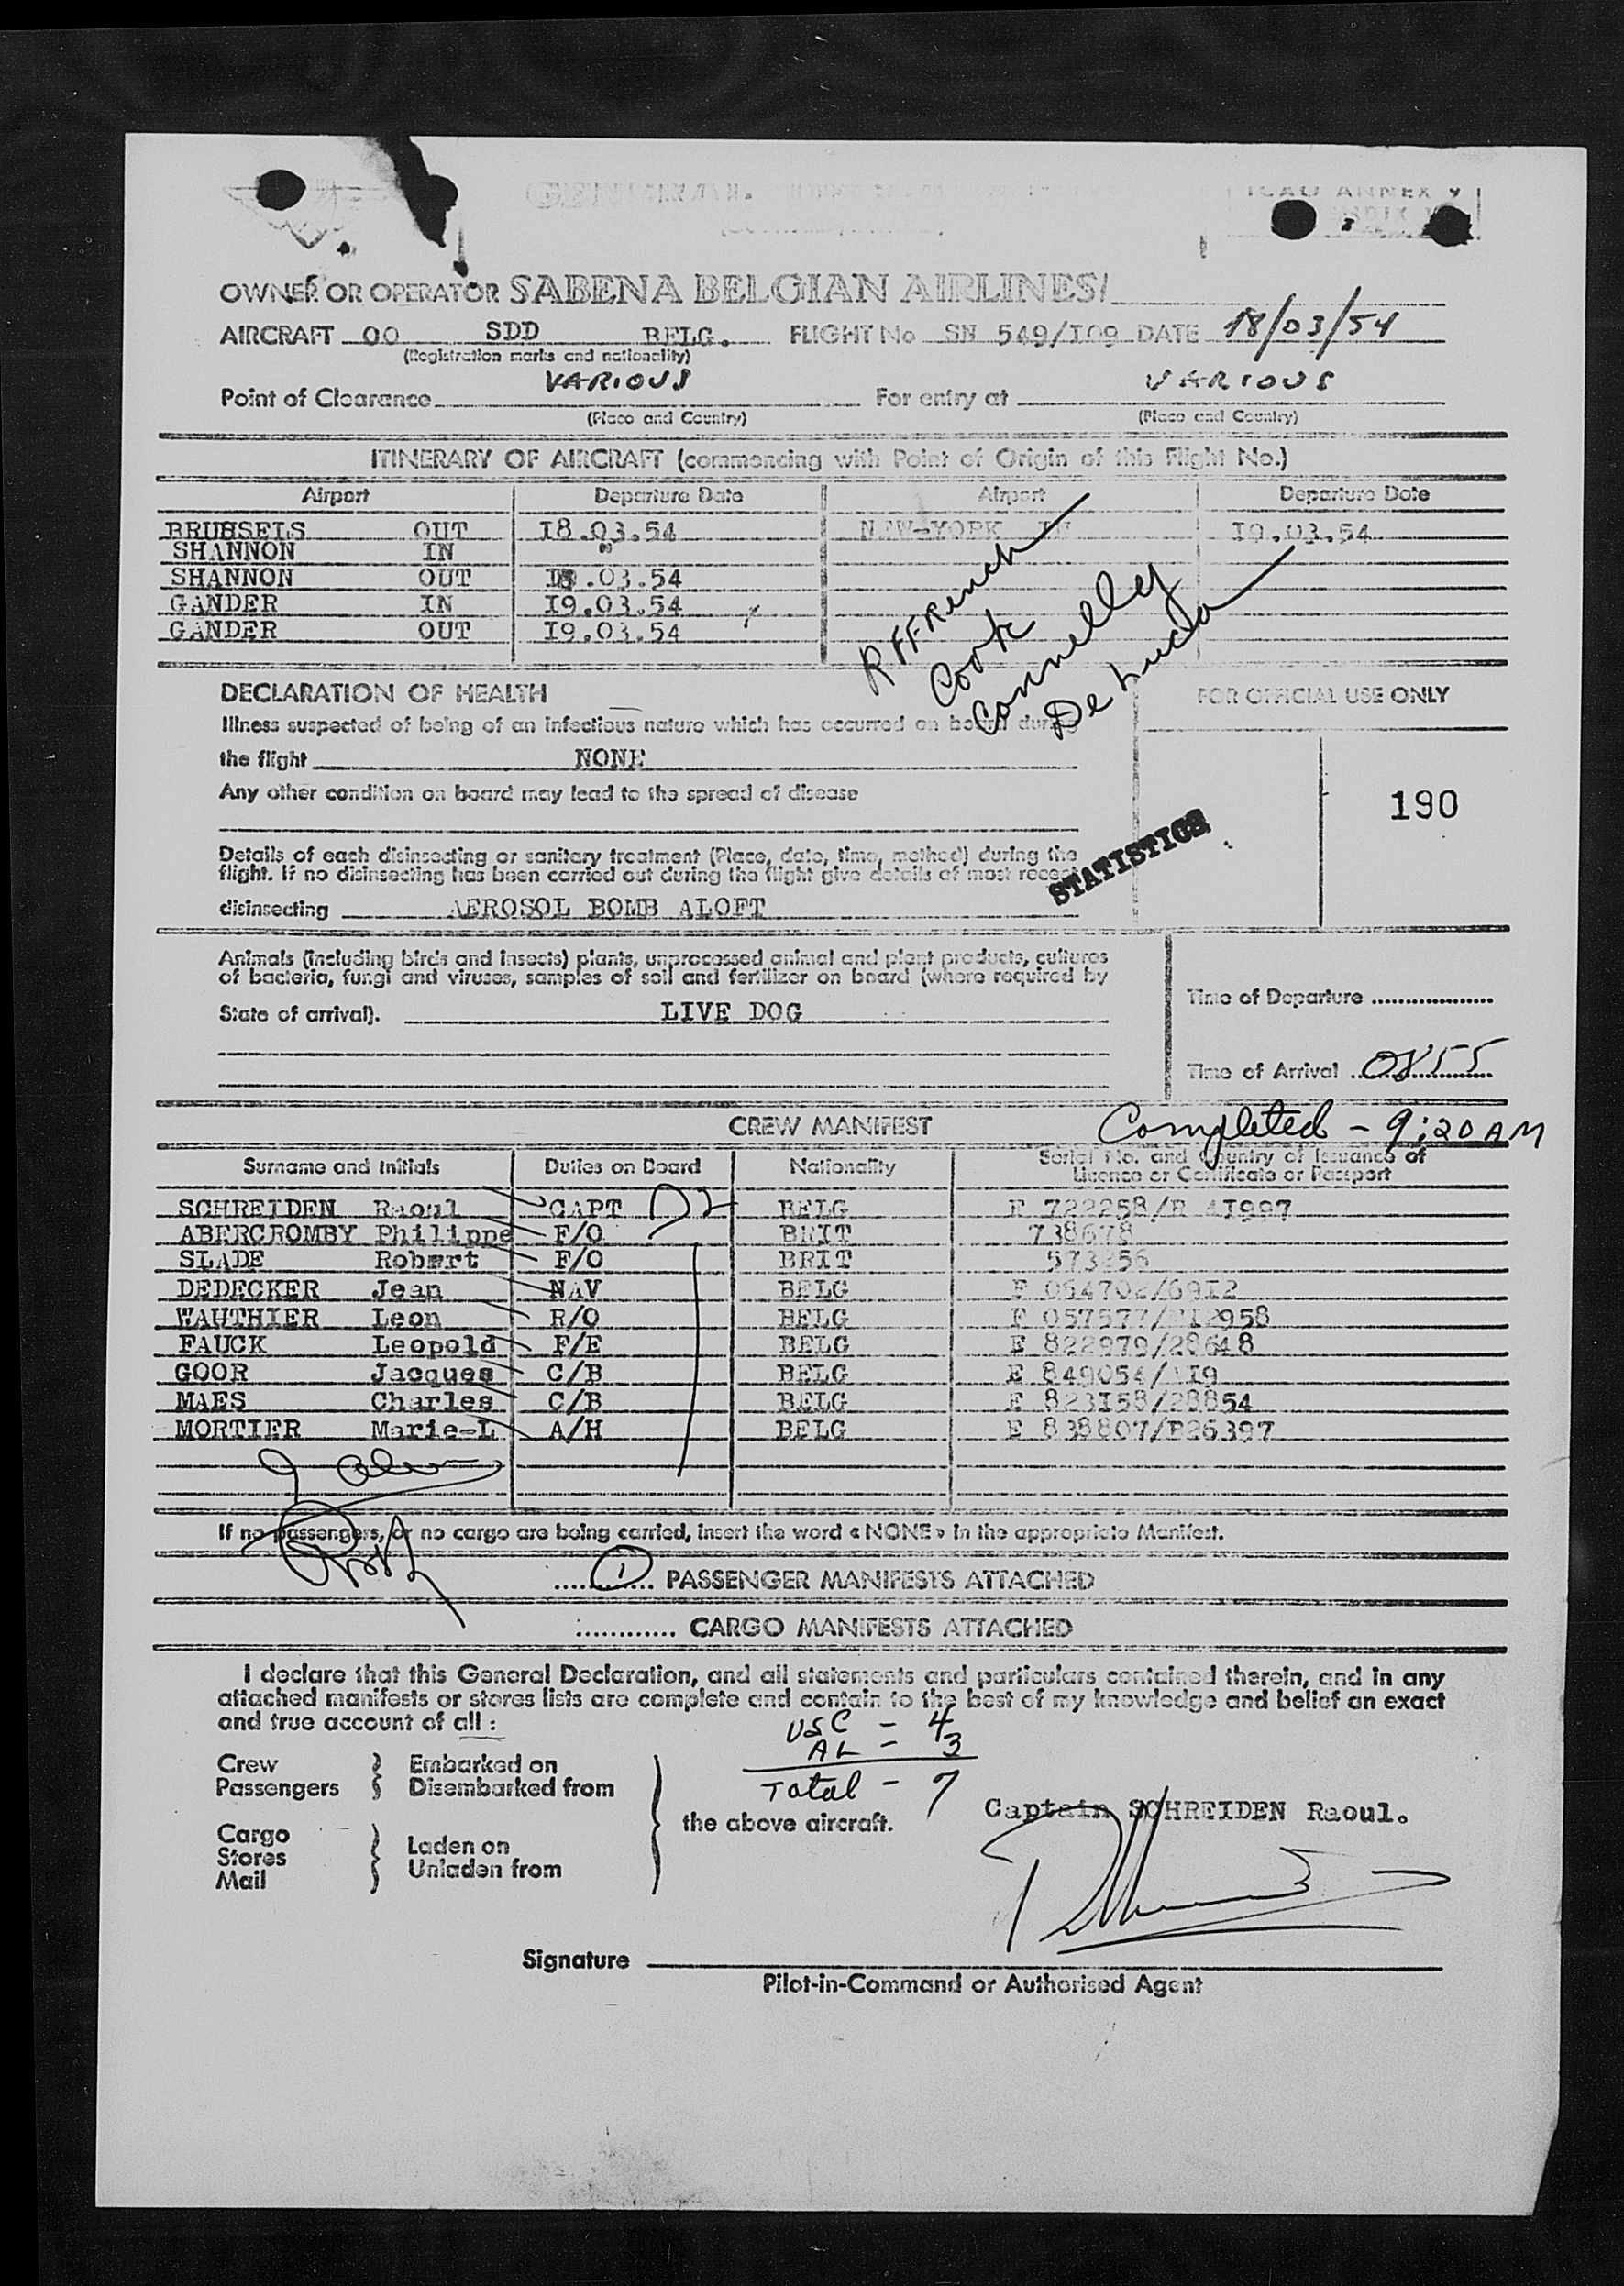 ICAO ANNEX 9
OWNER OR OPERATOR SABENA BELGIAN AIRLINES/
AIRCRAFT OO SDD BELG. FLIGHT No SN 549/I09 DATE 18/03/54
(Registration marks and nationality)
Point of Clearance VARIOUS For entry at VARIOUS
(Place and Country) (Place and Country)
ITINERARY OF AIRCRAFT (commencing with Point of Origin of this Flight No.)
Airport Departure Date Airport Departure Date
BRUSSELS OUT I8.03.54 NEW-YORK IN I9.03.54
SHANNON IN "
SHANNON OUT .03.54
GANDER IN I9.03.54
GANDER OUT I9.03.54
Cook
Connelly
De Luca
DECLARATION OF HEALTH FOR OFFICIAL USE ONLY
Illness suspected of being of an infectious nature which has occurred on board during
the flight NONE
Any other condition on board may lead to the spread of disease
190
STATISTICS
Details of each disinsecting or sanitary treatment (Place, date, time, method) during the
flight. If no disinsecting has been carried out during the flight give details of most recent
disinsecting AEROSOL BOMB ALOFT
Animals (including birds and insects) plants, unprocessed animal and plant products, cultures
of bacteria, fungi and viruses, samples of soil and fertilizer on board (where required by
State of arrival). LIVE DOG
Time of Departure
Time of Arrival 0855
CREW MANIFEST Completed - 9:20 AM
Surname and Initials Duties on Board Nationality Serial No. and Country of Issuance of
Licence or Certificate or Passport
SCHREIDEN Raoul CAPT BELG E 722258/B 4I997
ABERCROMBY Philippe F/O BRIT 738678
SLADE Robert F/O BRIT
DEDECKER Jean NAV BELG
WAUTHIER Leon R/O BELG
FAUCK Leopold F/E BELG E 822979/28648
GOOR Jacques C/B BELG
MAES Charles C/B BELG E 823I58/28854
MORTIER Marie-L A/H BELG E 838807/B26397
If no passengers, or no cargo are being carried, insert the word « NONE » in the appropriate Manifest.
1 PASSENGER MANIFESTS ATTACHED
............ CARGO MANIFESTS ATTACHED
I declare that this General Declaration, and all statements and particulars contained therein, and in any
attached manifests or stores lists are complete and contain to the best of my knowledge and belief an exact
and true account of all :
USC - 4
AL - 3
Total - 7
Crew Embarked on
Passengers Disembarked from
the above aircraft.
Captain SCHREIDEN Raoul.
Cargo
Stores
Mail
Laden on
Unladen from
Signature
Pilot-in-Command or Authorised Agent